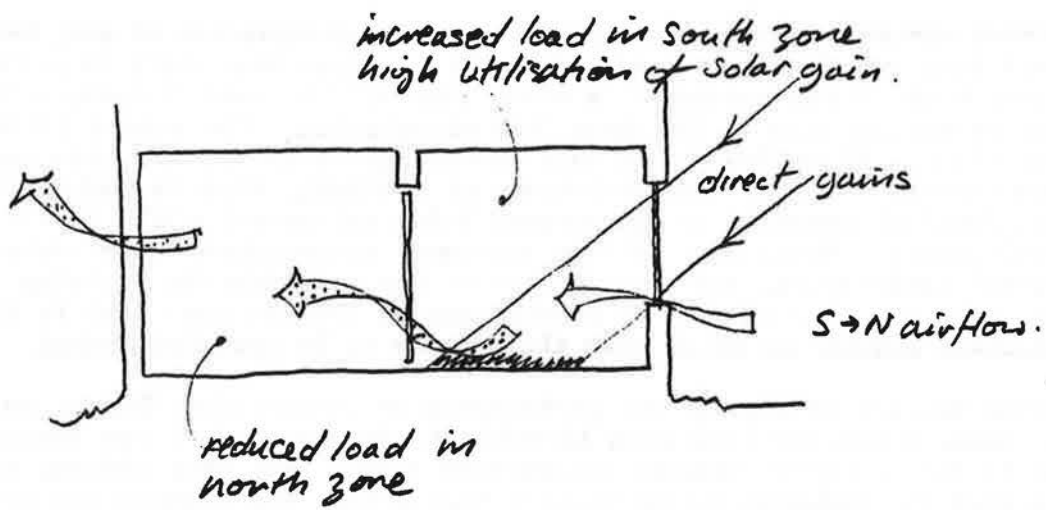 increased load in south zone
high utilisation of solar gain.
direct gains
S→N airflow.
reduced load in
north zone